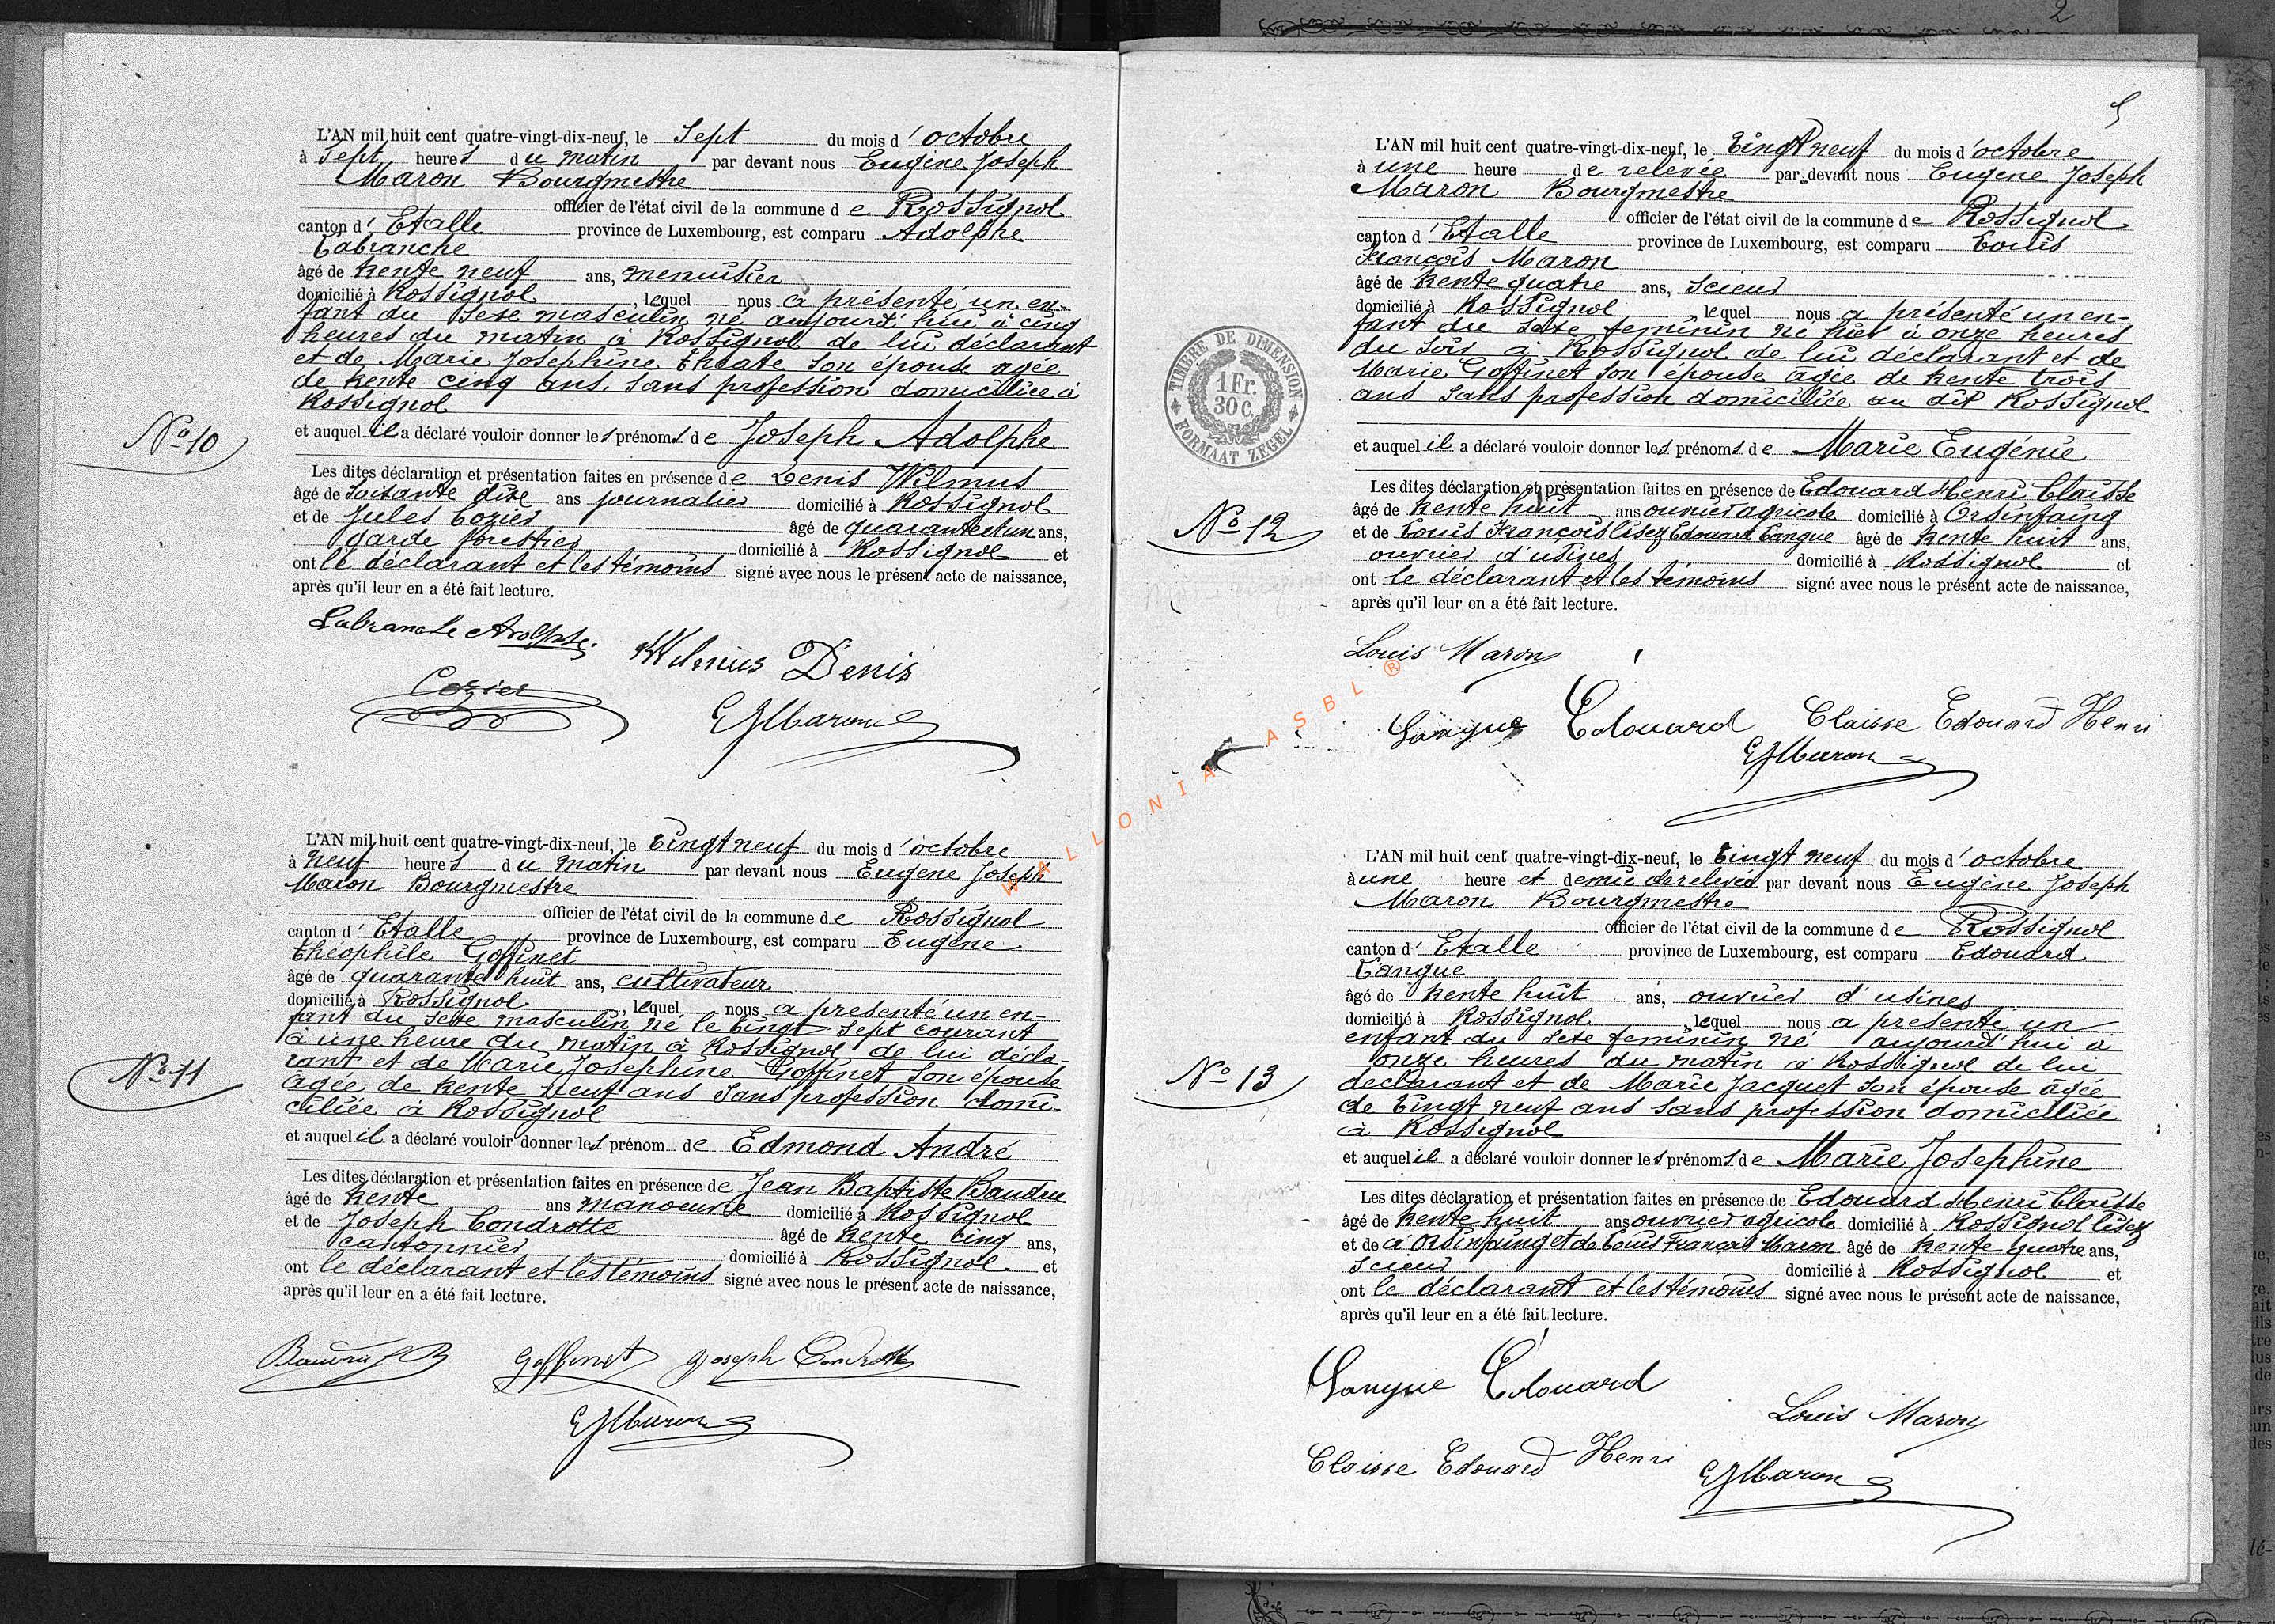 L'AN mil huit cent quatre-vingt-dix-neuf, le Sept du mois d'octobre
à Sept heures du matin par devant nous Eugène Joseph
Maron Bourgmestre
officier de l'état civil de la commune de Rossignol
canton d'Etalle province de Luxembourg, est comparu Adolphe
Labranche
âgé de trente neuf ans, menuisier
domicilié à Rossignol, lequel nous a présenté un en-
fant du sexe masculin né aujourd'hui à cinq
heures du matin à Rossignol de lui déclarant
et de Marie Josephine son épouse agée
de trente cinq ans, sans profession domiciliée à
Rossignol
No 10
et auquel il a déclaré vouloir donner les prénoms de Joseph Adolphe
Les dites déclaration et présentation faites en présence de Denis Wilmus
âgé de soixante dixe ans journalier domicilié à Rossignol
et de Jules Cozier âgé de quarante et un ans,
garde forestier domicilié à Rossignol et
ont le déclarant et les témoins signé avec nous le présent acte de naissance,
après qu'il leur en a été fait lecture.
Labranche Adolphe.
Wilmus Denis
Cozier
EJMaron
L'AN mil huit cent quatre-vingt-dix-neuf, le vingt neuf du mois d'octobre
à neuf heures du matin par devant nous Eugène Joseph
Maron Bourgmestre
officier de l'état civil de la commune de Rossignol
canton d'Etalle province de Luxembourg, est comparu Eugène
Théophile Goffinet
âgé de quarante huit ans, cultivateur
domicilié à Rossignol, lequel nous a présenté un en-
fant du sexe masculin né le vingt sept courant
à une heure du matin à Rossignol de lui décla-
rant et de Marie Josephine Goffinet son épouse
agée de trente neuf ans sans profession domi-
ciliée à Rossignol
No 11
et auquel il a déclaré vouloir donner les prénom de Edmond André
Les dites déclaration et présentation faites en présence de Jean Baptiste Baudru
âgé de trente ans manoeuvre domicilié à Rossignol
et de Joseph Condrotte âgé de trente cinq ans,
cantonnier domicilié à Rossignol et
ont le déclarant et les témoins signé avec nous le présent acte de naissance,
après qu'il leur en a été fait lecture.
Baudru JB Goffinet Joseph Condrotte
EJMaron
2
5
L'AN mil huit cent quatre-vingt-dix-neuf, le vingt neuf du mois d'octobre
à une heure de relevée par devant nous Eugène Joseph
Maron Bourgmestre
officier de l'état civil de la commune de Rossignol
canton d'Etalle province de Luxembourg, est comparu Louis
François Maron
âgé de trente quatre ans, scieur
domicilié à Rossignol lequel nous a présenté un en-
fant du sexe feminin né hier à onze heures
du soir à Rossignol de lui déclarant et de
Marie Goffinet son épouse agée de trente trois
ans sans profession domiciliée au dit Rossignol
TIMBRE DE DIMENSION
1 Fr.
30 C.
FORMAAT ZEGEL
et auquel il a déclaré vouloir donner les prénoms de Marie Eugénie
Les dites déclaration et présentation faites en présence de Edouard Henri Claisse
âgé de trente huit ans ouvrier agricole domicilié à Orsinfaing
No 12
et de Louis François lisez Edouard Langue âgé de trente huit ans,
ouvrier d'usines domicilié à Rossignol et
ont le déclarant et les témoins signé avec nous le présent acte de naissance,
après qu'il leur en a été fait lecture.
Louis Maron
Langue Edouard Claisse Edouard Henri
EJMaron
WALLONIA ASBL ®
L'AN mil huit cent quatre-vingt-dix-neuf, le vingt neuf du mois d'octobre
à une heure et demie de relevée par devant nous Eugène Joseph
Maron Bourgmestre
officier de l'état civil de la commune de Rossignol
canton d'Etalle province de Luxembourg, est comparu Edouard
Langue
âgé de trente huit ans, ouvrier d'usines
domicilié à Rossignol, lequel nous a présenté un
enfant du sexe feminin né aujourd'hui à
onze heures du matin à Rossignol de lui
déclarant et de Marie Jacquet son épouse agée
de vingt neuf ans sans profession domiciliée
à Rossignol
No 13
et auquel il a déclaré vouloir donner les prénoms de Marie Josephine
Les dites déclaration et présentation faites en présence de Edouard Henri Claisse
âgé de trente huit ans ouvrier agricole domicilié à Rossignol lisez
et de à Orsinfaing et de Louis François Maron âgé de trente quatre ans,
scieur domicilié à Rossignol et
ont le déclarant et les témoins signé avec nous le présent acte de naissance,
après qu'il leur en a été fait lecture.
Langue Edouard
Louis Maron
Claisse Edouard Henri
EJMaron